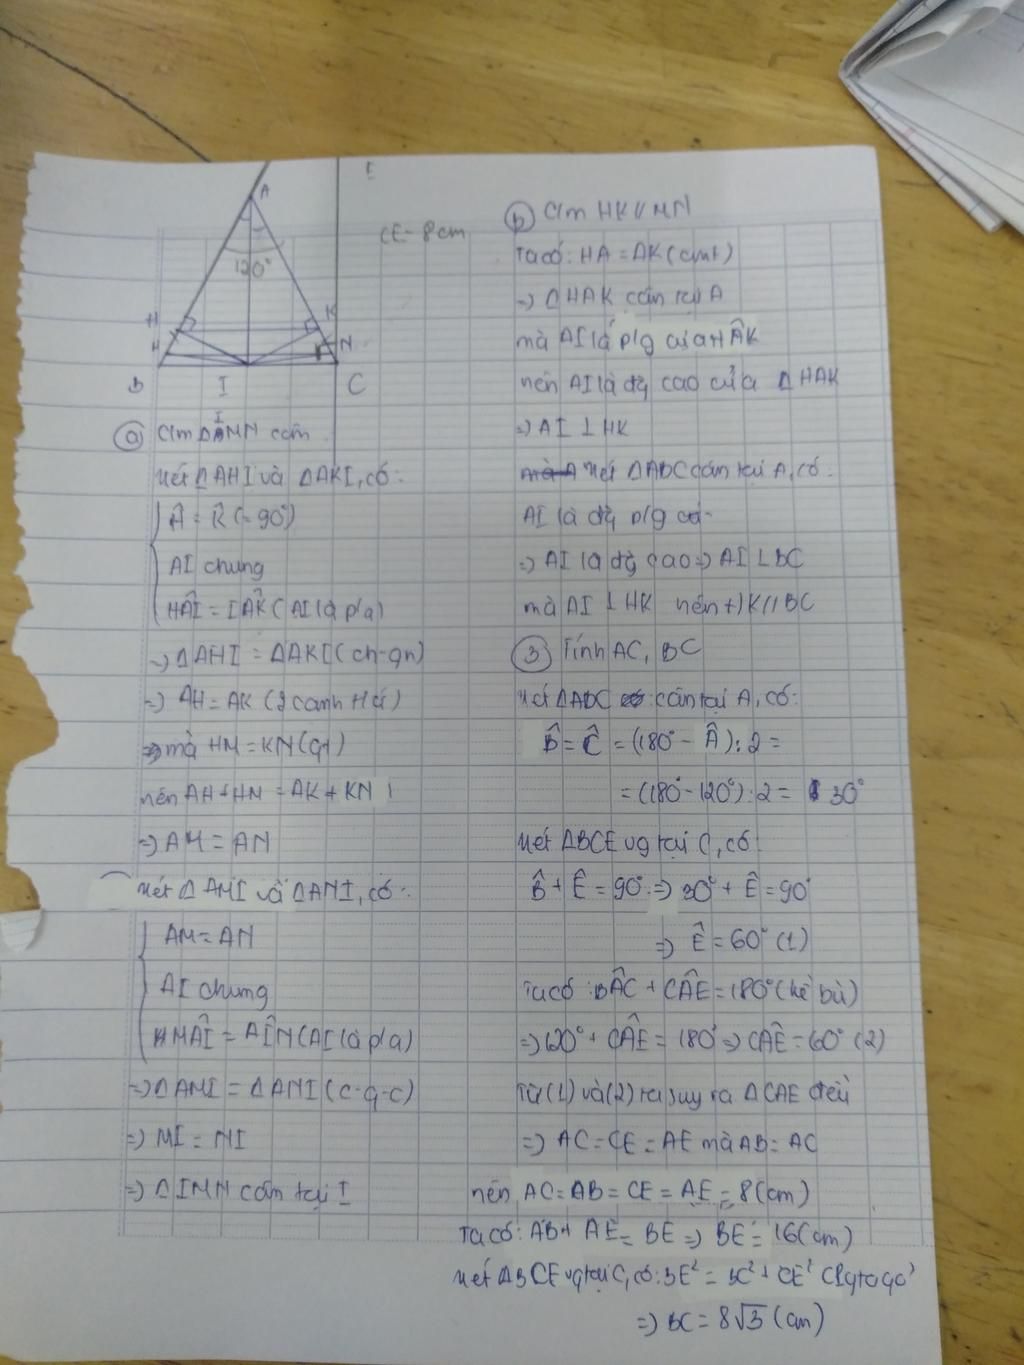 A
E
CE = 8cm
120°
H
K
M
N
B
I
C
a) C/m ΔIMN cân
Xét ΔAHI và ΔAKI, có:
Ĥ = K̂ (= 90°)
AI chung
HÂI = IÂK (AI là p/g)
=> ΔAHI = ΔAKI (ch-gn)
=> AH = AK (2 cạnh
=> mà HM = KN (gt)
nên AH + HM = AK + KN
=> AM = AN
Xét ΔAMI và ΔANI, có:
AM = AN
AI chung
MÂI = AÎN (AI là p/g)
=> ΔAMI = ΔANI (c-g-c)
=> MI = NI
=> ΔIMN cân tại I
b) C/m HK // MN
Ta có: HA = AK (cmt)
=> ΔHAK cân tại A
mà AI là p/g của HÂK
nên AI là đg cao của ΔHAK
=> AI ⊥ HK
Xét ΔABC cân tại A, có:
AI là đg p/g
=> AI là đg cao => AI ⊥ BC
mà AI ⊥ HK nên HK // BC
3) Tính AC, BC
Xét ΔABC cân tại A, có:
B̂ = Ĉ = (180° - Â) : 2 =
= (180° - 120°) : 2 = 30°
Xét ΔBCE vg tại C, có:
B̂ + Ê = 90° => 30° + Ê = 90°
=> Ê = 60° (1)
Ta có: BÂC + CÂE = 180° (kề bù)
=> 120° + CÂE = 180° => CÂE = 60° (2)
Từ (1) và (2) ta suy ra ΔCAE đều
=> AC = CE = AE mà AB = AC
nên AC = AB = CE = AE = 8 (cm)
Ta có: AB + AE = BE => BE = 16 (cm)
Xét ΔBCE vg tại C, có: BE² = BC² + CE²
=> BC = 8√3 (cm)